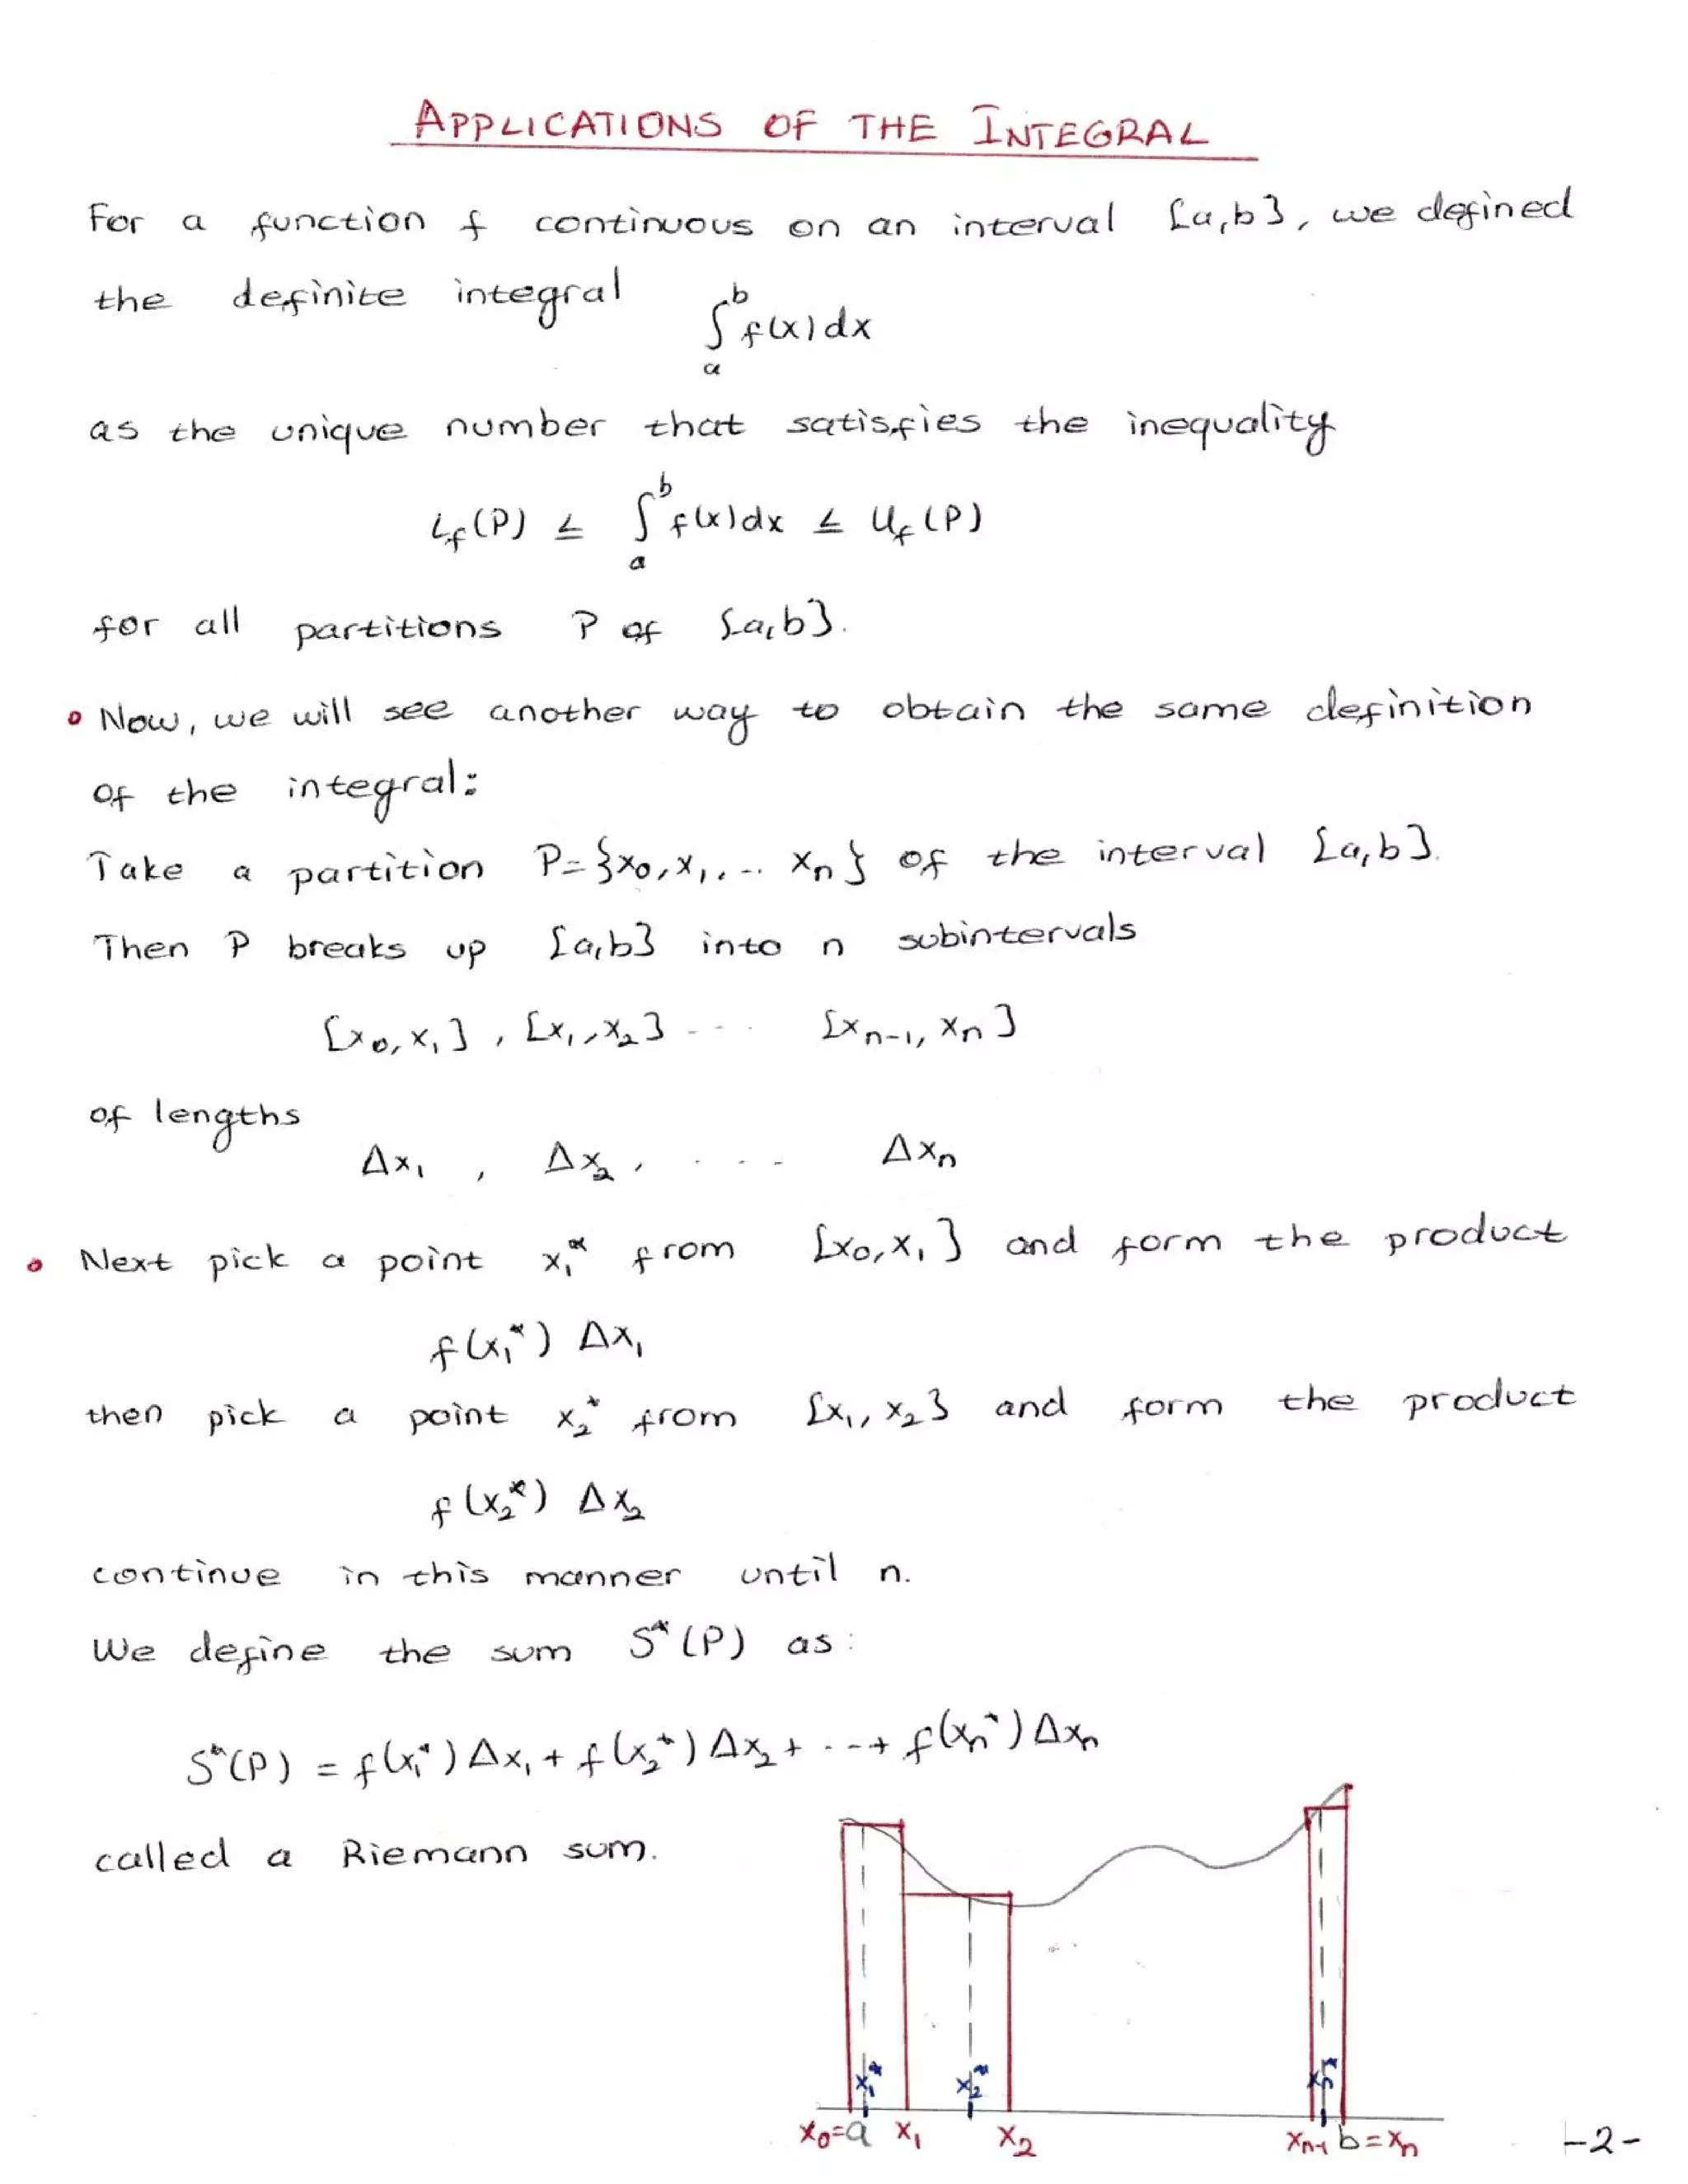 APPLICATIONS OF THE INTEGRAL
For a function f continuous on an interval [a,b], we defined
the definite integral ∫ₐᵇ f(x)dx
as the unique number that satisfies the inequality
L_f(P) ≤ ∫ₐᵇ f(x)dx ≤ U_f(P)
for all partitions P of [a,b].
• Now, we will see another way to obtain the same definition
of the integral:
Take a partition P={x₀,x₁,... xₙ} of the interval [a,b].
Then P breaks up [a,b] into n subintervals
[x₀,x₁], [x₁,x₂] --- [xₙ₋₁, xₙ]
of lengths
Δx₁, Δx₂, .... Δxₙ
• Next pick a point x₁* from [x₀,x₁] and form the product
f(x₁*) Δx₁
then pick a point x₂* from [x₁,x₂] and form the product
f(x₂*) Δx₂
continue in this manner until n.
We define the sum S*(P) as:
S*(P) = f(x₁*)Δx₁ + f(x₂*)Δx₂ + ... + f(xₙ*)Δxₙ
called a Riemann sum.
x₁* x₂* xₙ*
x₀=a x₁ x₂ xₙ₋₁ b=xₙ
-2-